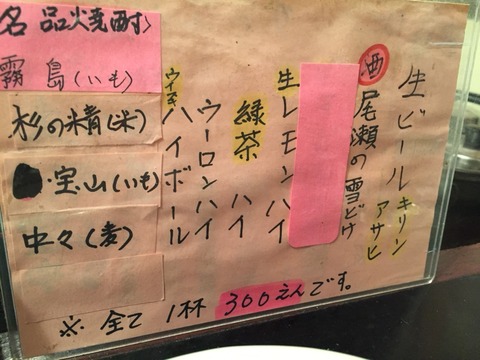 生ビール キリン アサヒ
酒 尾瀬の雪どけ
生レモンハイ
緑茶ハイ
ウーロンハイ
ウイスキーハイボール
名品焼酎
霧島(いも)
杉の精(米)
宝山(いも)
中々(麦)
※全て1杯300えんです。